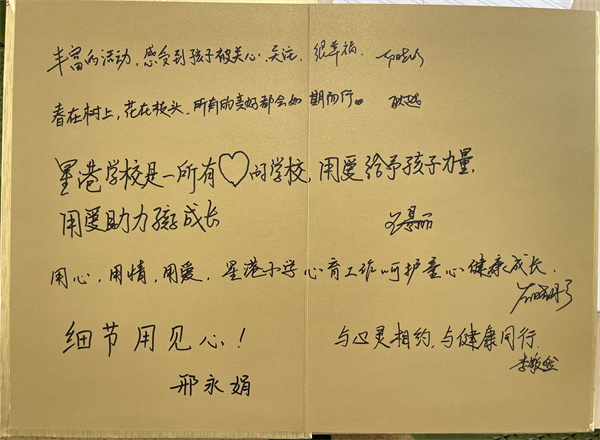 丰富的活动,感受到孩子被关心,关注,很幸福.
春在树上,花在枝头,所有的美好都会如期而行。 耿越
星港学校是一所有♡的学校,用爱给予孩子力量,
用爱助力孩子成长
用心,用情,用爱,星港小学心育工作呵护童心健康成长.
细节用见心!
邢永娟
与心灵相约,与健康同行.
李敏